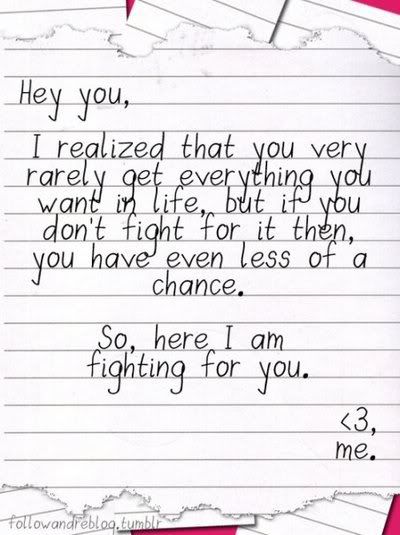 Hey you,
I realized that you very
rarely get everything you
want in life, but if you
don't fight for it then,
you have even less of a
chance.
So, here I am
fighting for you.
<3,
me.
followandreblog.tumblr